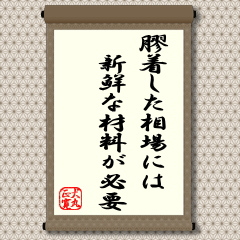 膠着した相場には
新鮮な材料が必要